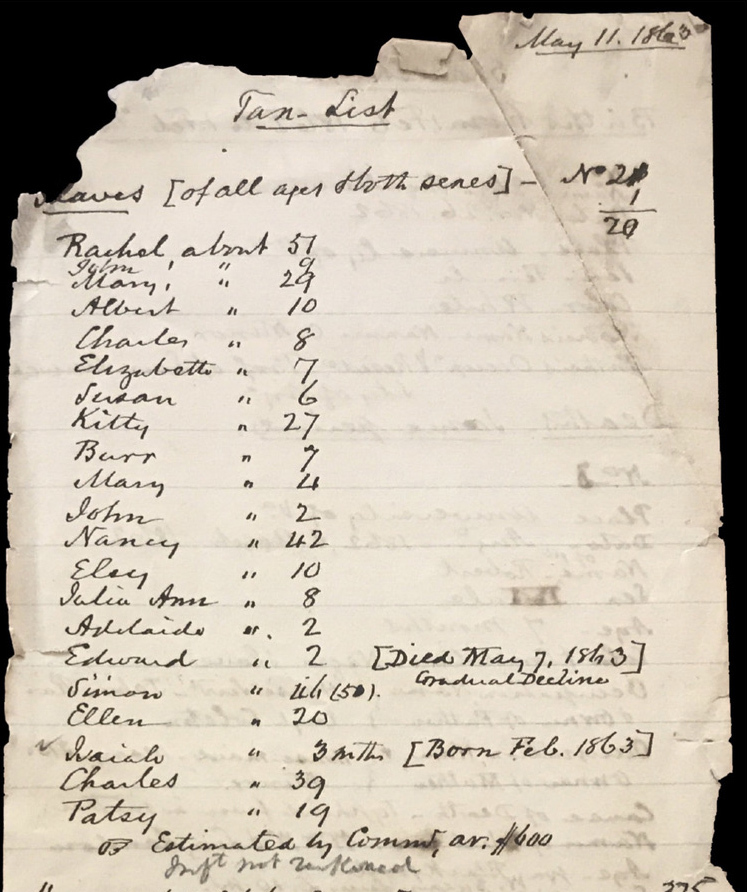 May 11. 1863
Tax-List
Slaves [of all ages & both sexes] - No 21
1
20
Rachel, about 51
John " 9
Mary, " 29
Albert " 10
Charles " 8
Elizabeth " 7
Susan " 6
Kitty " 27
Burr " 7
Mary " 4
John " 2
Nancy " 42
Elsy " 10
Julia Ann " 8
Adelaide " 2
Edward " 2 [Died May 7, 1863]
Gradual Decline
Simon " 46 (50).
Ellen " 20
✓ Isaiah " 3 mths [Born Feb. 1863]
Charles " 39
Patsy " 19
☞ Estimated by Commr, av. $600
not reckoned
375